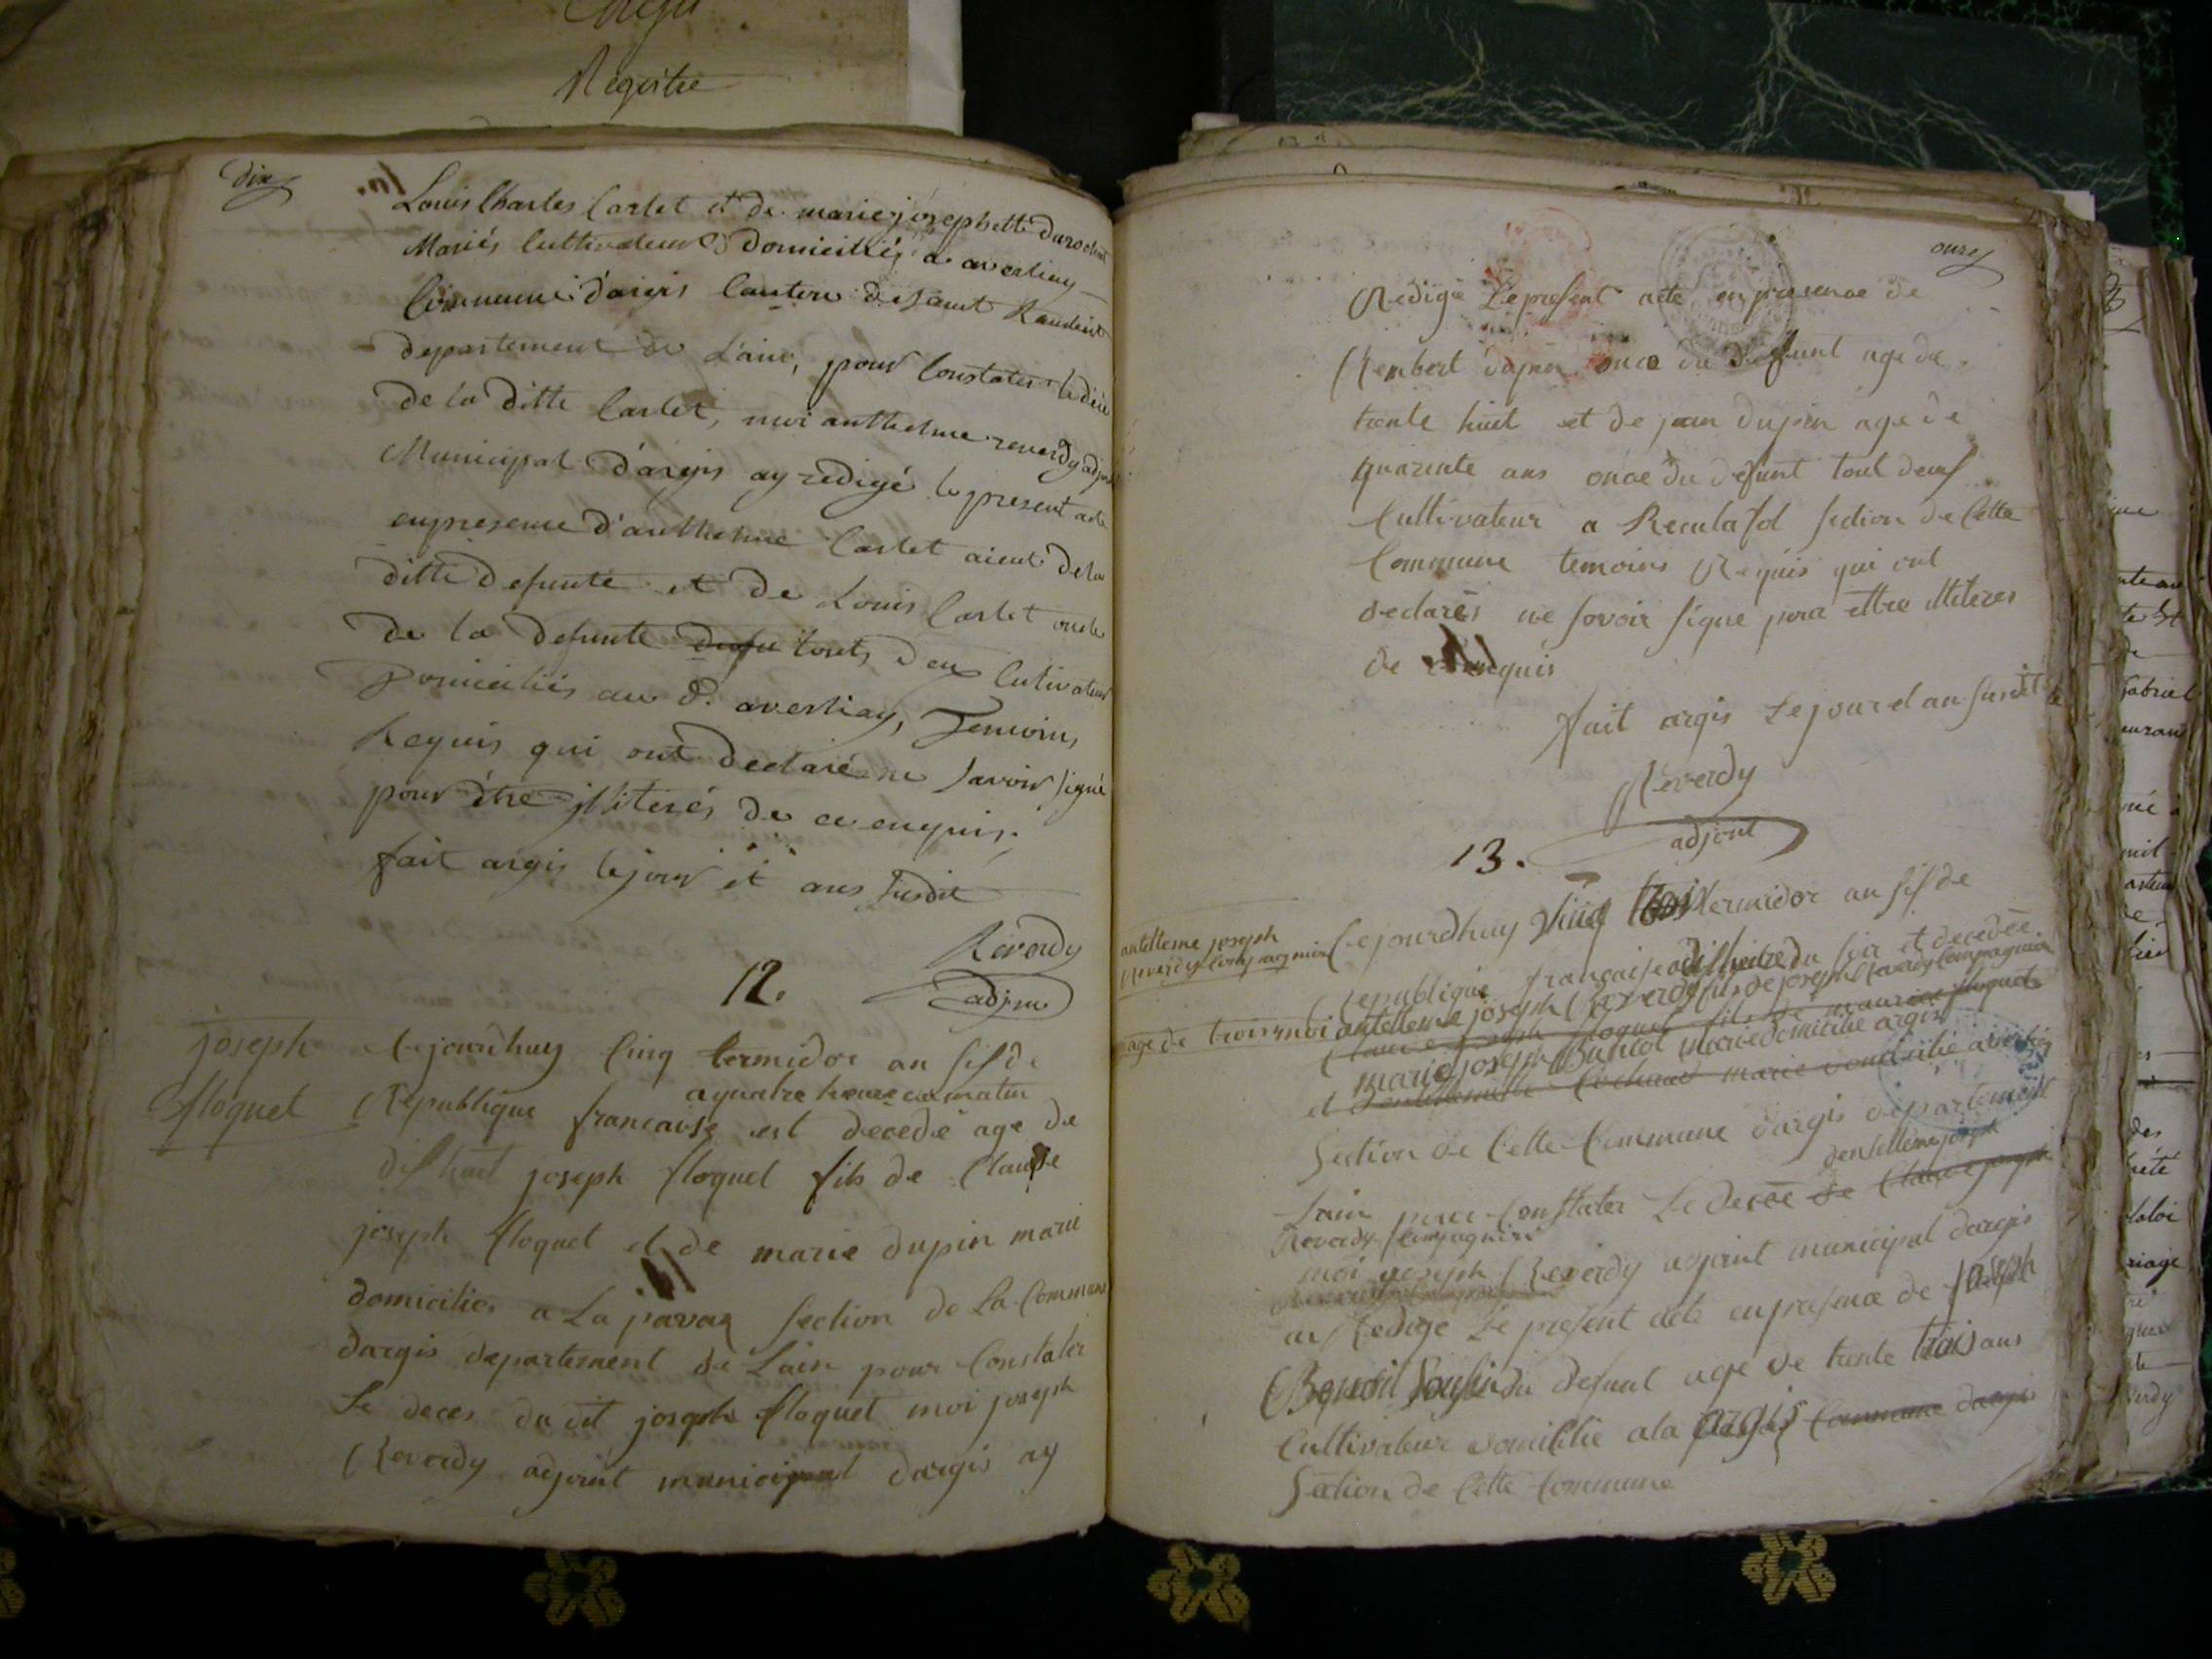 Registre
dix
Louis Charles Carlet et de marie josephette
Mariés Cultivateurs Domiciliés a averliay
Commune d'argis Canton de saint Rambert
departement de L'ain, pour Constater le décè
de la ditte Carlet, moi anthelme reverdy adjoint
Municipal d'argis ay redigé le present acte
en presence d'anthelme Carlet aieul de la
ditte defunte et de Louis Carlet oncle
de la defunte touts deux Cultivateurs
Domiciliés au d. averliay, Temoins
Requis qui ont declaré ne savoir signé
pour être illiterés de ce enquis.
fait argis le jour et ans susdit
Reverdy
adjoint
12.
joseph
floquet
Cejourdhuy Cinq termidor an sis de
a quatre heure au matin
Republique francaise est decedé age de
dis huit joseph floquet fils de Claude
joseph floquet et de marie dupin marié
domicilies a La pavaz section de La Commune
dargis departement de Lain pour Constater
Le deces du dit joseph floquet moi joseph
Reverdy adjoint municipal dargis ay
onze
Redigé Le present acte en presence de
Rembert dupin once du defunt age de
trente huit et de jean dupin age de
quarente ans once du defunt tout deus
Cultivateur a Reculafol section de Cette
Commune temoins Requis qui ont
declarés ne savoir signe pour ettre illiteres
de enquis
fait argis Le jour et an susdit
Reverdy
adjoint
13.
antelleme joseph
Reverdy Compagnion
age de trois moi
Cejourdhuy Vint trois termidor an sis de
Republique francaise a dis heure du soir et decedée
antelleme joseph Reverdy fils de joseph Reverdy Compagnion
Claude joseph floquet fils de maurice floquet
marie joseph marie domicilie argis
et Cochaud marie domicilie
Section de Cette Commune dargis departement
dentelleme joseph
Lain pour Constater Le decee de Claude joseph
Reverdy Compagnion
moi joseph Reverdy adjoint municipal dargis
ay Redige Le present acte en presence de joseph
Benoit du defunt age de trente trois ans
Cultivateur domicilie a la argis Commune dargis
Section de Cette Commune